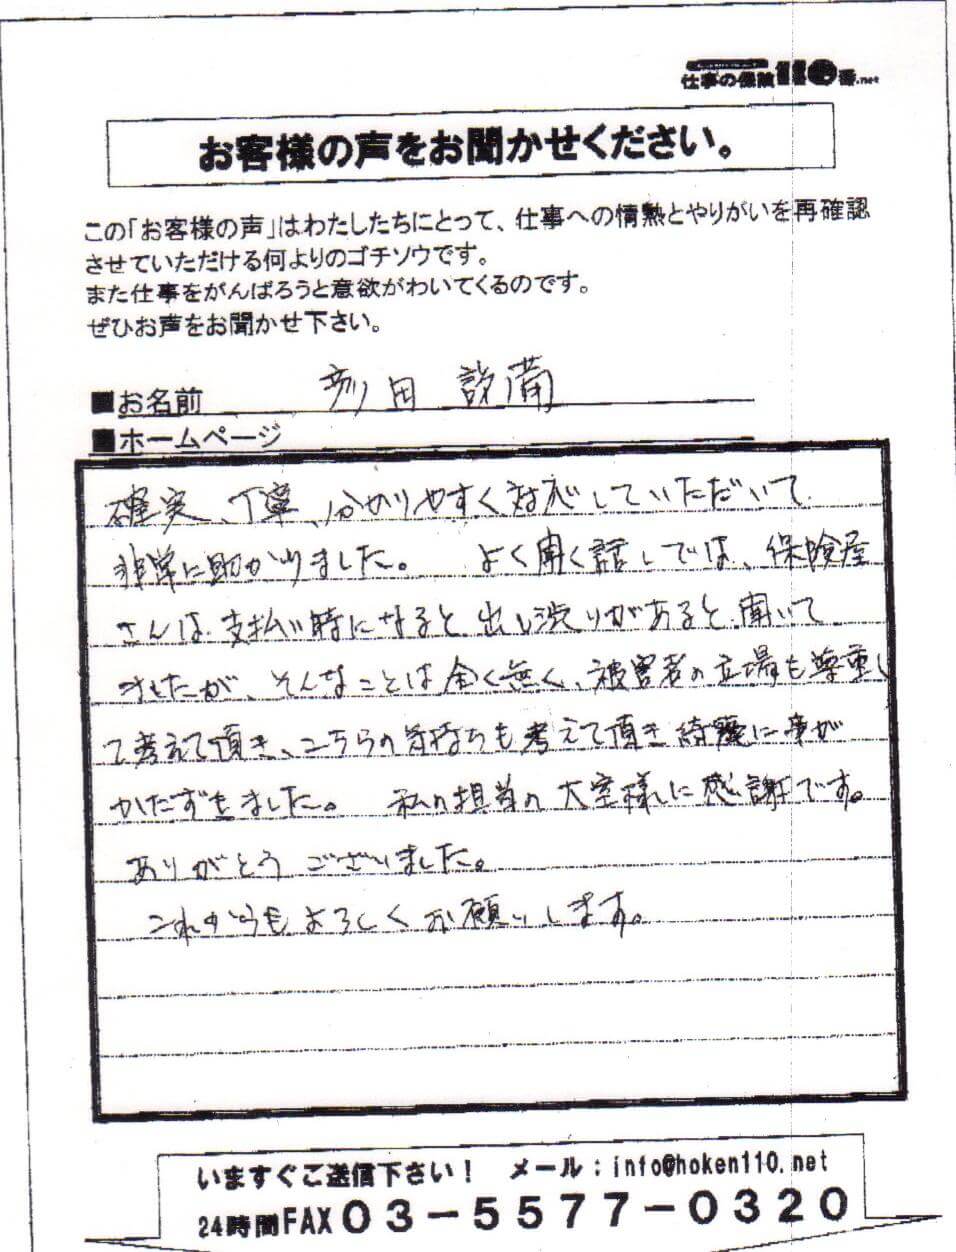 仕事の保険110番.net
お客様の声をお聞かせください。
この「お客様の声」はわたしたちにとって、仕事への情熱とやりがいを再確認
させていただける何よりのゴチソウです。
また仕事をがんばろうと意欲がわいてくるのです。
ぜひお声をお聞かせ下さい。
■お名前 田 設備
■ホームページ
確実、丁寧、分かりやすく対応していただいて
非常に助かりました。 よく聞く話しでは、保険屋
さんは支払い時になると出し渋りがあると聞いて
ましたが、そんなことは全く無く、被害者の立場も尊重し
て考えて頂き、こちらの気持ちも考えて頂き綺麗に事が
かたずきました。 私の担当の大室様に感謝です。
ありがとうございました。
これからもよろしくお願いします。
いますぐご送信下さい! メール:info@hoken110.net
24時間FAX03-5577-0320